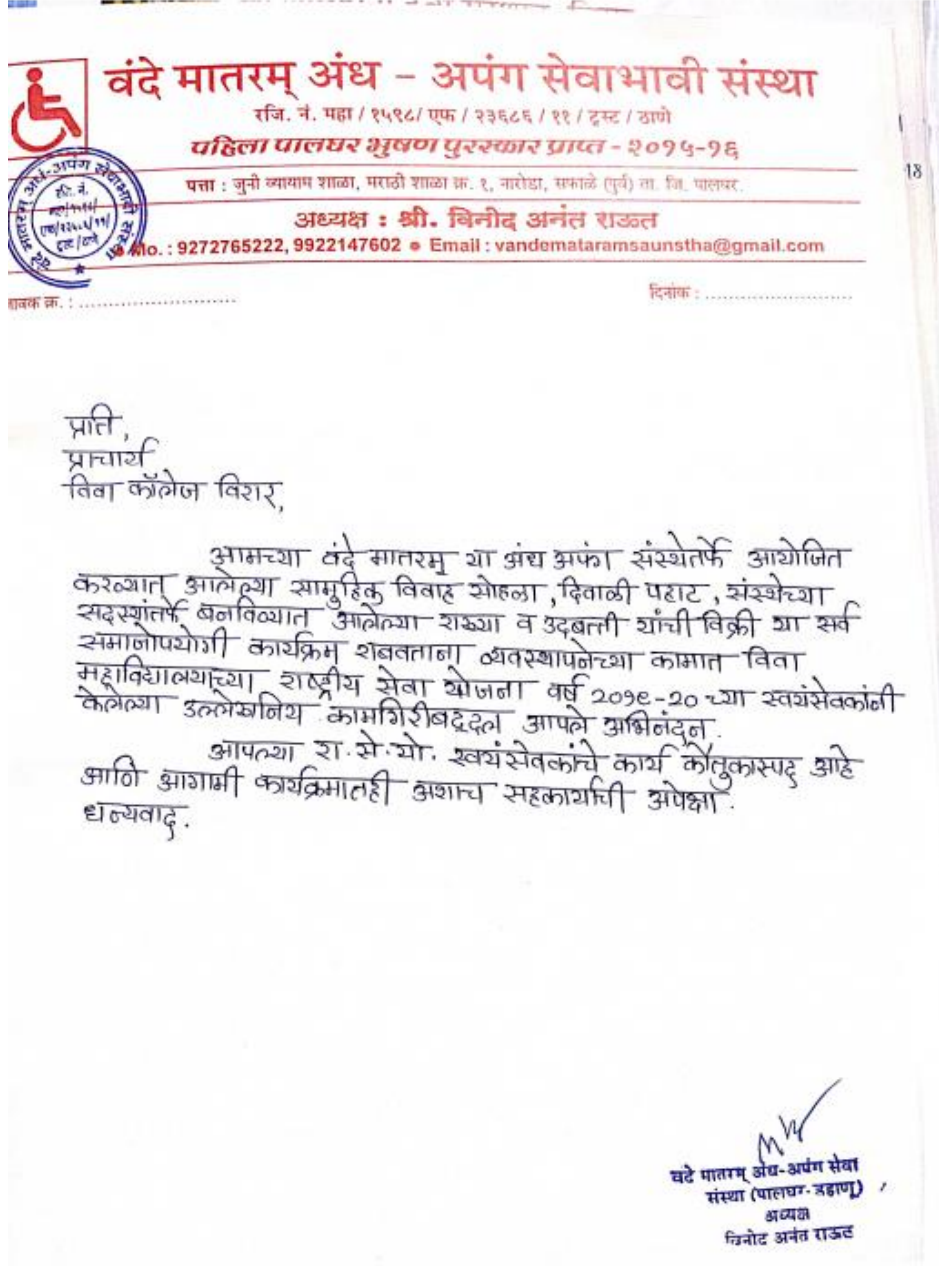 वंदे मातरम् अंध – अपंग सेवाभावी संस्था
रजि. नं. महा / १५९८/ एफ / २३६८६ / ११ / ट्रस्ट / ठाणे
पहिला पालघर भुषण पुरस्कार प्राप्त - २०१५-१६
पत्ता : जुनी व्यायाम शाळा, मराठी शाळा क्र. १, नारोडा, सफाळे (पुर्व) ता. जि. पालघर.
अध्यक्ष : श्री. विनोद अनंत राऊत
Mo. : 9272765222, 9922147602 ● Email : vandemataramsaunstha@gmail.com
18
जावक क्र. : ............................
दिनांक : ............................
प्रति,
प्राचार्य
विवा कॉलेज विरार,
आमच्या वंदे मातरम् या अंध अफंग संस्थेतर्फे आयोजित
करण्यात आलेल्या सामुहिक विवाह सोहळा, दिवाळी पहाट, संस्थेच्या
सदस्यांतर्फे बनविण्यात आलेल्या राख्या व उदबत्ती यांची विक्री या सर्व
समाजोपयोगी कार्यक्रम राबवताना व्यवस्थापनेच्या कामात विवा
महाविद्यालयाच्या राष्ट्रीय सेवा योजना वर्ष २०१९-२० च्या स्वयंसेवकांनी
केलेल्या उल्लेखनिय कामगिरीबद्दल आपले अभिनंदन.
आपल्या रा.से.यो. स्वयंसेवकांचे कार्य कौतुकास्पद आहे
आणि आगामी कार्यक्रमातही अशाच सहकार्याची अपेक्षा.
धन्यवाद.
वंदे मातरम् अंध-अपंग सेवा
संस्था (पालघर-डहाणू)
अध्यक्ष
विनोद अनंत राऊत